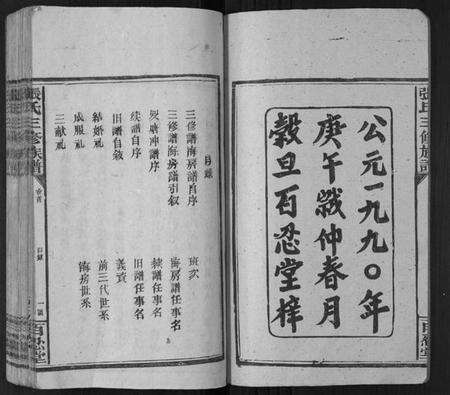 張氏三修族譜
公元一九九〇年
庚午歲仲春月
穀旦百忍堂梓
百忍堂
目錄
三修譜海房譜自序
三修譜海房譜引叙
续譜自序
旧譜自叙
结婚礼
成服礼
三献礼
班次
海房譜任事名
续譜任事名
旧譜任事名
義資
前三代世系
海房世系
張氏三修族譜
卷首
目錄
一
百忍堂